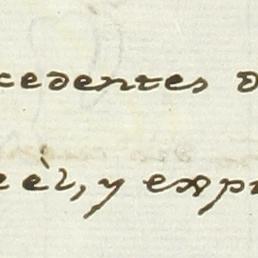 cedentes d
eèr, y expr